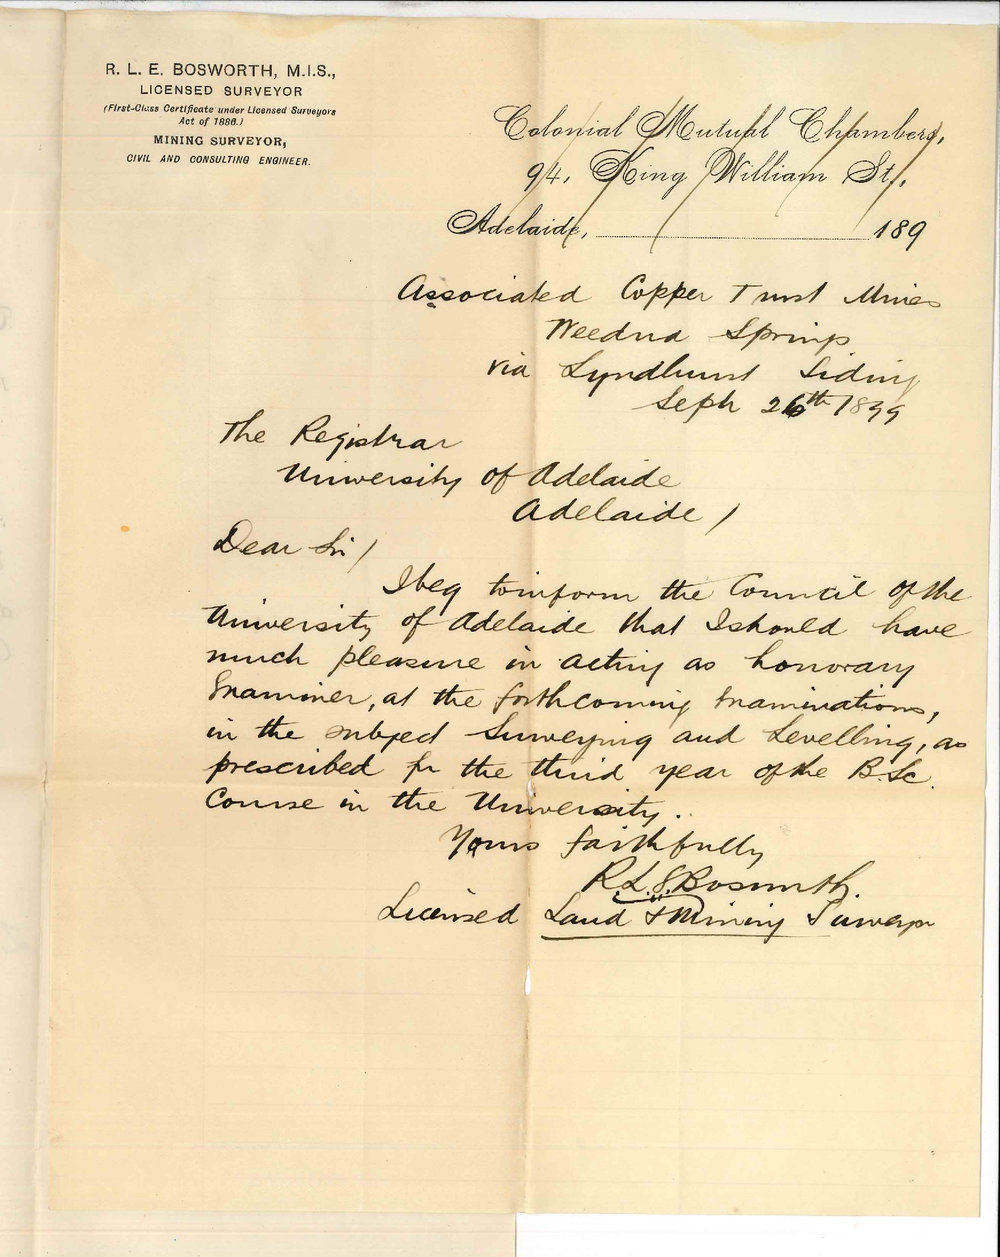 R. L. E. BOSWORTH, M.I.S.,
LICENSED SURVEYOR
(First-Class Certificate under Licensed Surveyors
Act of 1886.)
MINING SURVEYOR,
CIVIL AND CONSULTING ENGINEER.
Colonial Mutual Chambers,
94, King William St.,
Adelaide, 189
Associated Copper Trust Mines
Springs
via Lyndhurst Siding
Sept 26th 1899
The Registrar
University of Adelaide
Adelaide /
Dear Sir /
I beg to inform the Council of the
University of Adelaide that I should have
much pleasure in acting as honorary
Examiner, at the forthcoming Examinations,
in the subject Surveying and Levelling, as
prescribed for the third year of the B.Sc.
Course in the University.
Yours faithfully
R.L.E. Bosworth.
Licensed Land & Mining Surveyor